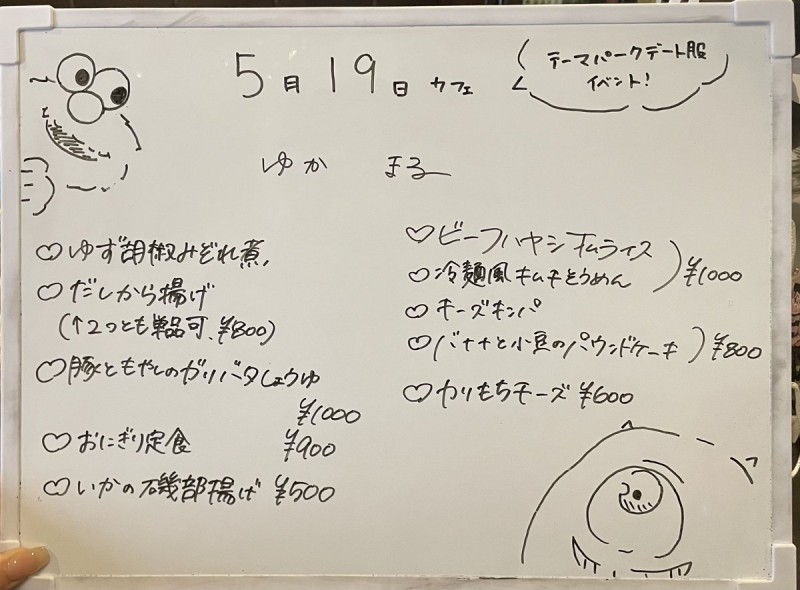 5月19日 カフェ
テーマパークデート服
イベント!
ゆか まるー
♡ゆず胡椒みぞれ煮
♡だしから揚げ
(↑2つとも単品可 ¥800)
♡豚ともやしのガリバタしょうゆ
¥1000
♡おにぎり定食 ¥900
♡いかの磯部揚げ ¥500
♡ビーフハヤシオムライス
♡冷麺風キムチそうめん
¥1000
♡チーズキンパ
♡バナナと小豆のパウンドケーキ
¥800
♡カリもちチーズ ¥600